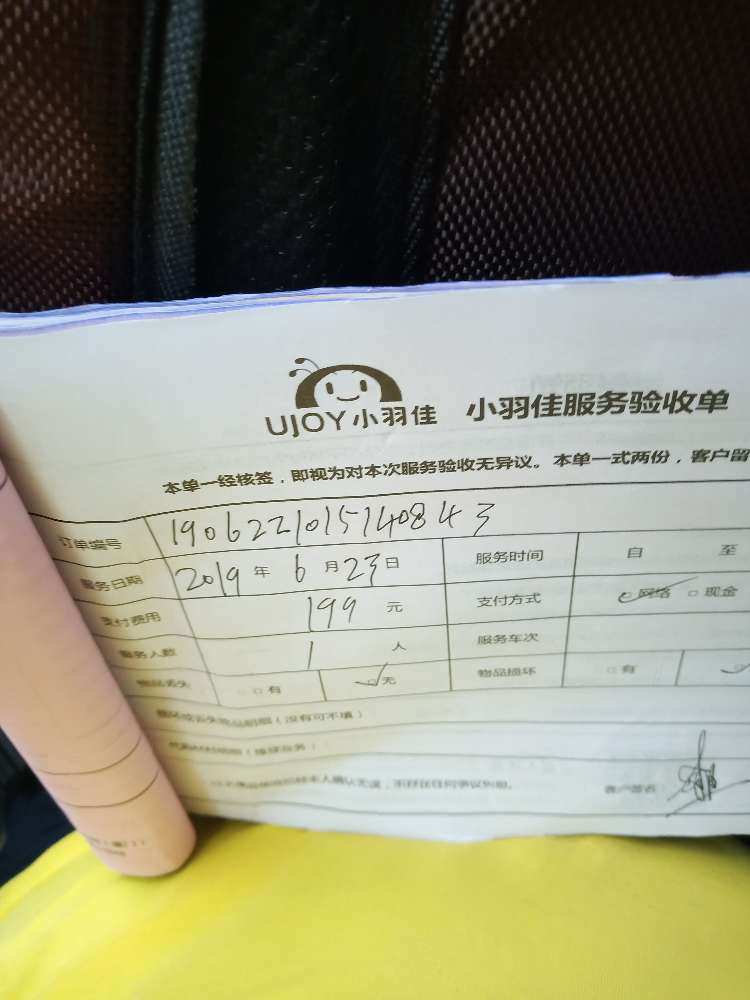 UJOY小羽佳 小羽佳服务验收单
本单一经核签，即视为对本次服务验收无异议。本单一式两份，客户留
订单编号 190622101514084 3
服务日期 2019 年 6 月 23 日 服务时间 自 至
支付费用 199 元 支付方式 □网络 □现金
服务人数 1 人 服务车次
物品丢失 □有 □无 物品损坏 □有
损坏或丢失物品明细（没有可不填）
客户签名：